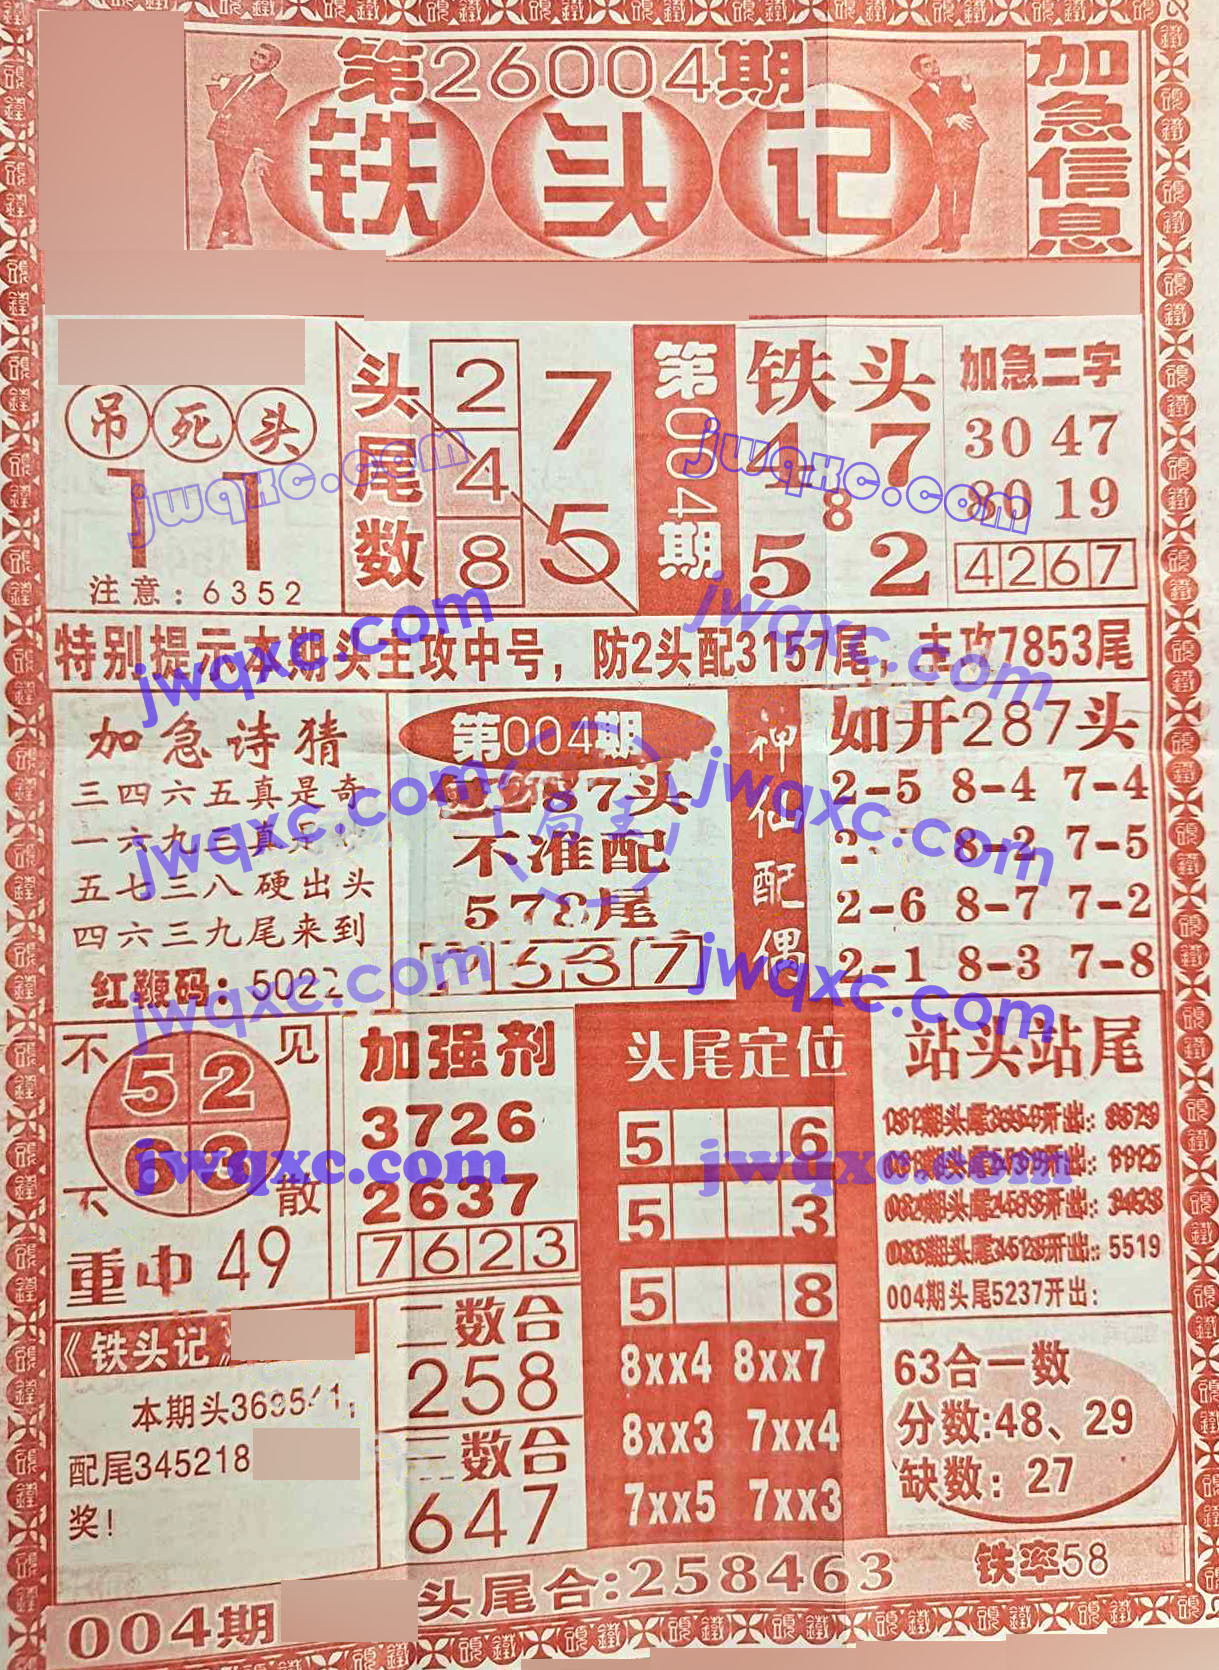 第26004期
铁头记
加急信息
吊死头
11
注意：6352
头尾数
2
4
8
7
5
第004期
铁头
4 7
8
5 2
加急二字
30 47
80 19
4267
特别提示本期头主攻中号，防2头配3157尾，主攻7853尾
加急诗猜
三四六五真是奇
一六九三真是
五七三八硬出头
四六三九尾来到
红鞭码：5022
第004期
287头
不准配
578尾
637
神仙配偶
如开287头
2-5 8-4 7-4
8-2 7-5
2-6 8-7 7-2
2-1 8-3 7-8
不见
52
63
不散
重中49
加强剂
3726
2637
7623
头尾定位
5 6
5 3
5 8
8xx4 8xx7
8xx3 7xx4
7xx5 7xx3
站头站尾
5519
004期头尾5237开出：
《铁头记》
本期头369541，
配尾345218
奖！
二数合
258
三数合
647
63合一数
分数:48、29
缺数：27
004期
头尾合:258463
铁率58
jwqxc.com
jwqxc.com
jwqxc.com
jwqxc.com
jwqxc.com
jwqxc.com
jwqxc.com
jwqxc.com
jwqxc.com
jwqxc.com